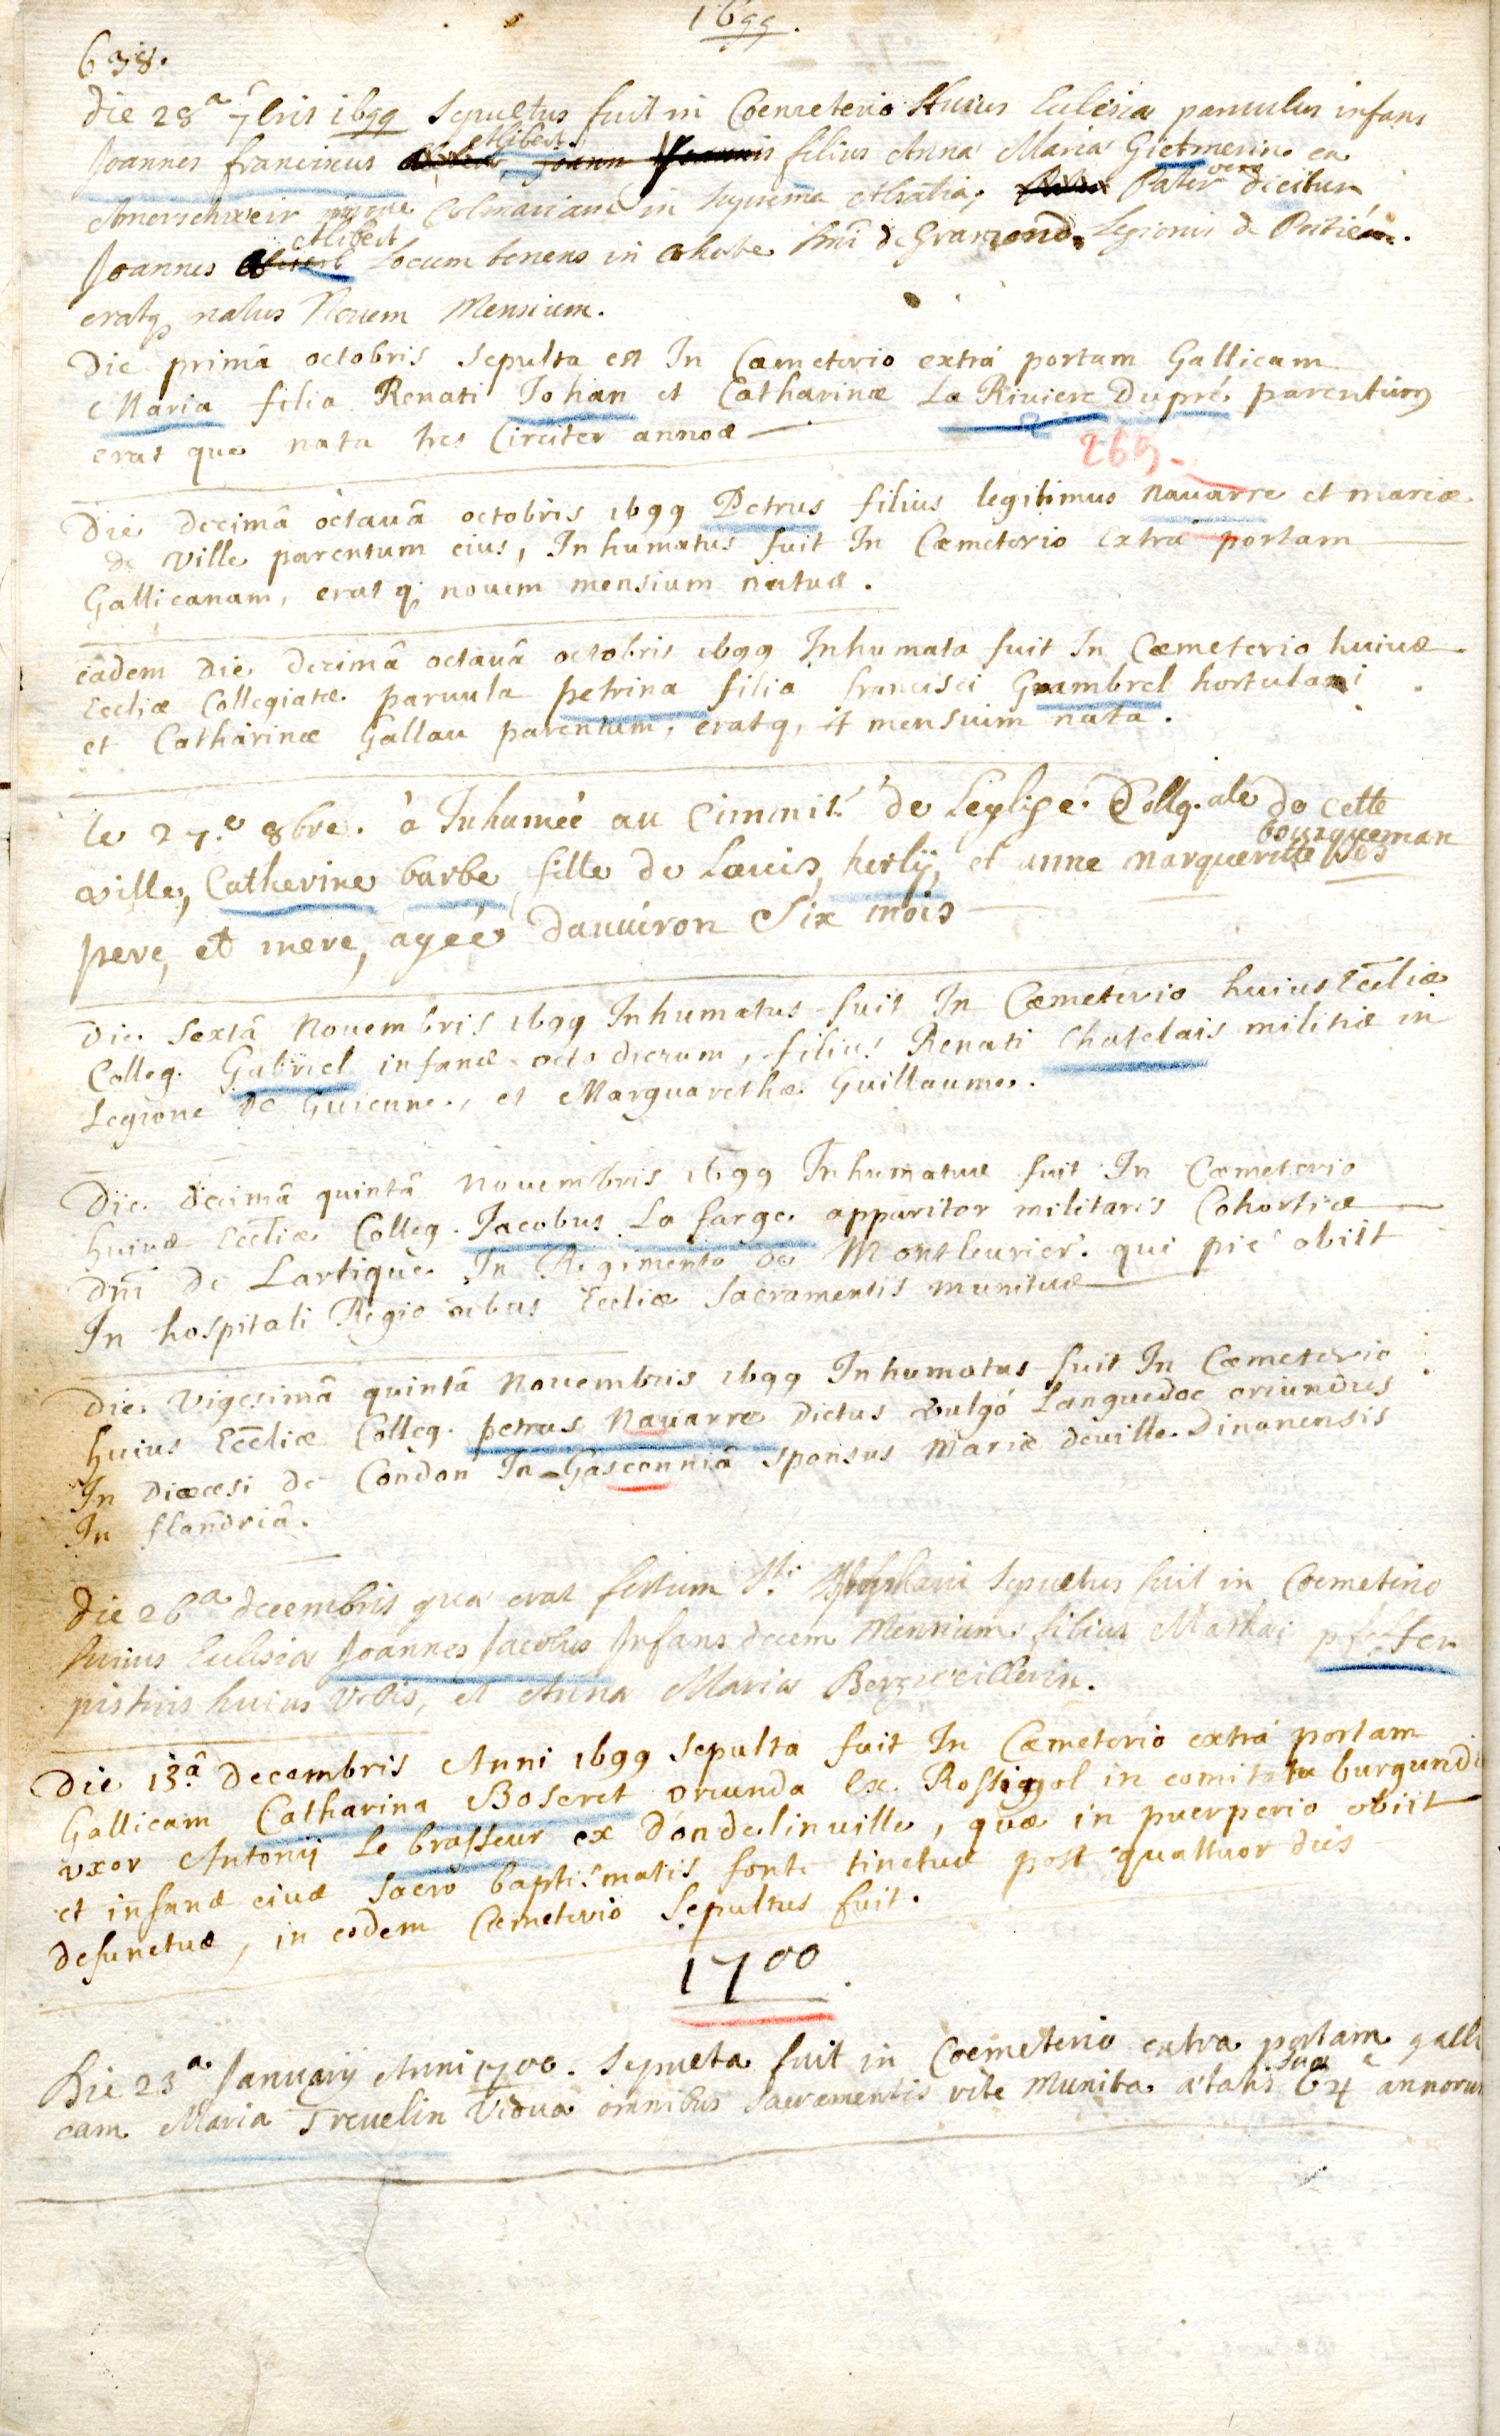 1699.
638.
Die 28ª 7bris 1699 Sepultus fuit in Coemeterio Huius Eclesia paruulus infans
Joannes franciscus Alibert filius Anna Maria Gietmerin ea
Amerschweir Colmariam in Suprema Alsatia, Pater vero dicitur
Joannes Alibert Locum tenens in Cohorte Dni de Gramond Legionis de
eratq natus Nouem Mensium.
Die primâ octobris Sepulta est In Cœmeterio extrá portam Gallicam
Maria filia Renati Johan et Catharinæ La Riuiere Dupré parentum
erat que nata tres Circiter annos
269.
Die decimâ octauâ octobris 1699 Petrus filius legitimus nauarre et mariæ
de ville parentum eius, Inhumatus fuit In Cœmeterio Extrá portam
Gallicanam, erat q; nouem mensium natus.
eadem Die decimâ octauâ octobris 1699 Inhumata fuit In Cœmeterio huius
Eccliæ Collegiatæ paruula petrina filia francisci Grambrel hortulani
et Catharinæ Gallau parentum, eratq, 4 mensium nata.
le 27.e 8bre. à Inhumeé au Cimmit. de Leglise Collg.ale de cette
ville, Catherine barbe fille de Louis, herlij, et anne margueritte bourqueman ses
pere, et mere, ageé dauuiron Six mois
Die Sextâ Nouembris 1699 Inhumatus fuit In Cœmeterio huius Eccliæ
Colleg. Gabriel infans octo dierum, filius Renati Chatelais militiæ in
Legione De Guienne, et Marguarethæ Guillaume.
Die decimâ quintâ Nouembris 1699 Inhumatus fuit In Cœmeterio
huius Eccliæ Colleg. Jacobus La farge apparitor militaris Cohortis
Dni De Lartique In Regimento de Montleurier. qui pie obiit
In hospitali Regio oībus Eccliæ Sacramentis munitus
Die Vigesimâ quintâ Nouembris 1699 Inhumatus fuit In Cœmeterio
huius Eccliæ Colleg. petrus Nauarre Dictus vulgó Languedoc oriundus
In Diœcesi de Condon In Gasconniâ Sponsus Mariæ deuille Dinanensis
In flandriâ.
Die 26ª decembris qua erat festum Sti Stephani Sepultus fuit in Coemeterio
huius Eclesia Joannes Jacobus Infans decem Mensium filius Mathæi pfeffer
pistoris huius Vrbis, et Anna Maria Berzweillerin.
Die 13.â Decembris Anni 1699 Sepulta fuit In Cœmeterio extrá portam
Gallicam Catharina Boseret oriunda Ex Rossignol in comitatu burgundi
vxor Antonij Le brasseur ex Dondelinuille, quæ in puerperio obiit
et infans eius Sacro baptismatis fonte tinctus post quattuor dies
defunctus, in eodem Cœmeterio Sepultus fuit.
1700.
Die 23ª Januarij Anni 1700. Sepulta fuit in Coemeterio extra portam galli
cam Maria Treuelin Vidua omnibus Sacramentis rite Munita ætatis Suæ 64 annorum